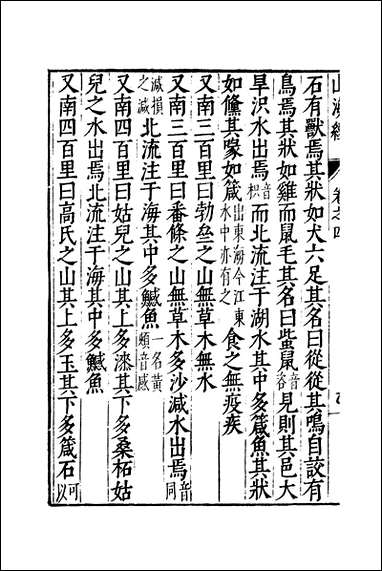 山海經 卷之四
石有獸焉其狀如犬六足其名曰從從其鳴自詨有
鳥焉其狀如雞而鼠毛其名曰䖪鼠音咨見則其邑大
旱沢水出焉音枳而北流注于湖水其中多箴魚其狀
如儵其喙如箴出東海今江東水中亦有之食之無疫疾
又南三百里曰勃亝之山無草木無水
又南三百里曰番條之山無草木多沙減水出焉音同
減損之減北流注于海其中多鱤魚一名黃頰音感
又南四百里曰姑兒之山其上多漆其下多桑柘姑
兒之水出焉北流注于海其中多鱤魚
又南四百里曰高氏之山其上多玉其下多箴石可以